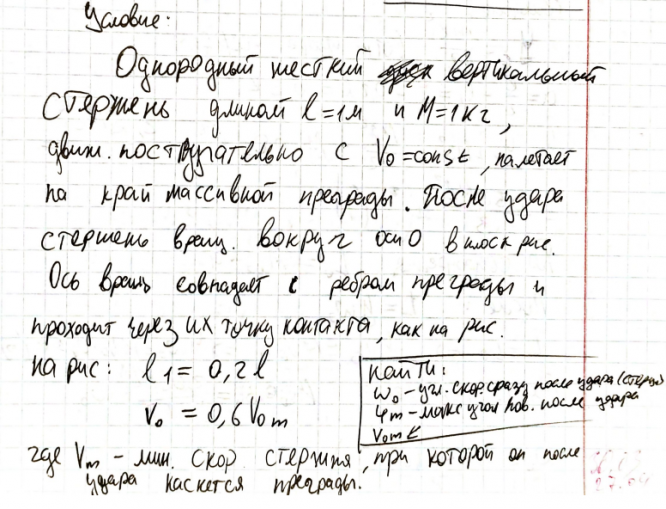 Условие:
Однородный жесткий вертикальный
стержень длиной l=1м и M=1кг,
движ. поступательно с V₀=const, налетает
на край массивной преграды. После удара
стержень вращ. вокруг оси O в плоск рис.
Ось вращ совпадает с ребром преграды и
проходит через их точку контакта, как на рис.
на рис: l₁ = 0,2l
V₀ = 0,6V₀m
Найти:
ω₀ - угл. скор. сразу после удара (стержн)
φm - макс угол пов. после удара
V₀m
где Vm - мин. скор стержня, при которой он после
удара каснется преграды.